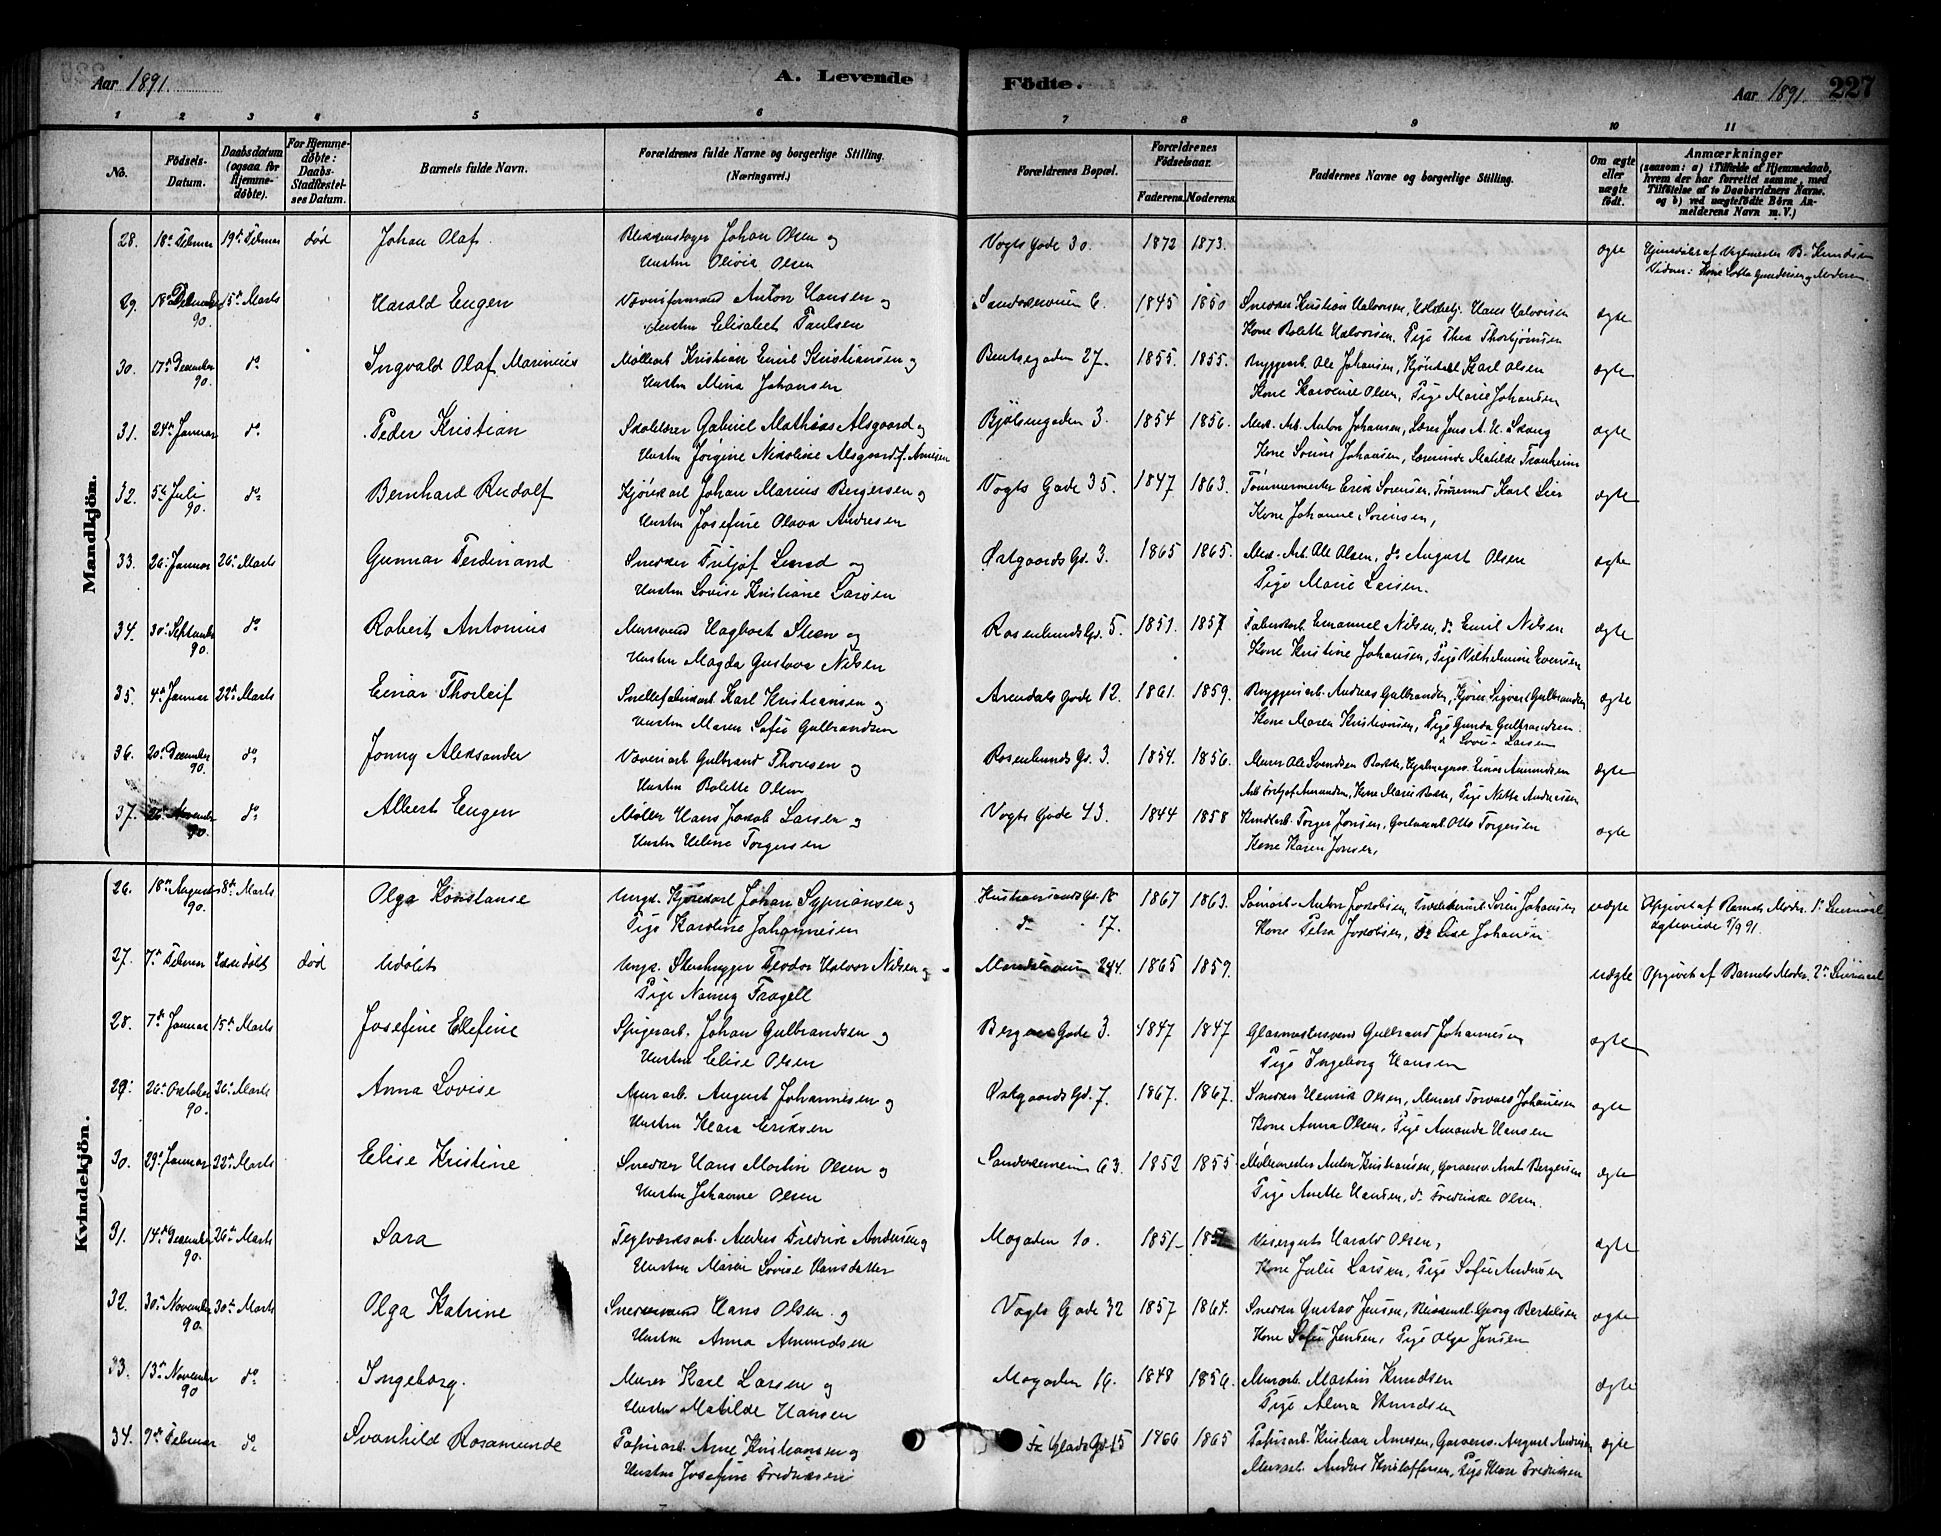 Aar 1891. A. Levende Födte. Aar 1891. 227
1 2 3 4 5 6 7 8 9 10 11
No. Födsels-Datum. Daabsdatum (ogsaa for Hjemme-döbte). For Hjemme-döbte: Daabs-Stadfæstel-ses Datum. Barnets fulde Navn. Forældrenes fulde Navne og borgerlige Stilling. (Næringsvei.) Forældrenes Bopæl. Forældrenes Födselsaar. Faderens. Moderens. Faddernes Navne og borgerlige Stilling. Om ægte eller uægte födt. Anmærkninger (saasom: a) i Tilfælde af Hjemmedaab, hvem der har forrettet samme, med Tilföielse af to Daabsvidners Navne, og b) ved uægtefödte Börn Anmelderens Navn m. V.)
Mandkjön.
28. 18de Februar 19de Februar död Johan Olaf. Johan Olsen og Vogts Gade 30. 1872 1873. ægte
Hustru Olivia Olsen
29. 18de 90. 15de Marts Harald Eugen Anton Hansen og Sandakerveien 6. 1845 1850 Snedker Kristian Halvorsen, Hans Halvorsen ægte
Hustru Elisabet Paulsen Kone Bolette Halvorsen, Pige Thea Thorbjörnsen
30. 17de December 90. do Ingvald Olaf Marinius Möllearb. Kristian Emil Kristiansen og Bentsegaden 27. 1855. 1855. Bryggeriarb. Ole Johansen, Kjörekarl Karl Olsen ægte
Hustru Mina Johansen Kone Karoline Olsen, Pige Marie Johansen
31. 24de Januar do Peder Kristian Skolelærer Gabriel Mathias Alsgaard og Bjölsengaden 3. 1854 1856. Anton Johansen, Lærer Jens A. U. Skaug ægte
Hustru Jörgine Nikoline Alsgaard f. Arnesen Kone Sorine Johansen, Lærerinde Matilde Tranheim
32. 5te Juli 90. do Bernhard Rudolf Kjörekarl Johan Marius Bergersen og Vogts Gade 35. 1847 1863. Tömmermester Erik Sorensen, Karl Lier ægte
Hustru Josefine Olava Andresen Kone Johanne Sorensen,
33. 26de Januar 26de Marts Gunnar Ferdinand Snedker Fritjof Lund og Östgaards Gd. 3. 1865 1865. Ole Olsen, do August Olsen ægte
Hustru Lovise Kristiane Larsen Pige Marie Larsen.
34. 30te September 90. do Robert Antonius Mursvend Hagbart Steen og Rosenlunds Gd. 5. 1851. 1857 Fabrikarb. Emanuel Nilsen, do Emil Nilsen ægte
Hustru Magda Gustava Nilsen Kone Kristine Johansen, Pige Vilhelmine Evensen
35. 4de Januar 22de Marts Einar Thorleif Karl Kristiansen og Arendals Gade 12. 1861. 1859. Bryggeriarb. Andreas Gulbrandsen, Sigvart Gulbrandsen ægte
Hustru Maren Sofie Gulbrandsen Kone Maren Kristiansen, Pige Gunda Gulbrandsen
do Lovise Larsen
36. 20de December 90. do Jonny Aleksander Væveriarb Gulbrand Thorsen og Rosenlunds Gd. 3 1854. 1856. Murer Ole Svendsen Einar Amundsen ægte
Hustru Bolette Olsen
37. 26de November 90. do Albert Eugen Möller Hans Jakob Larsen og Vogts Gade 43. 1844 1858 Torger Jonsen, Otto Torgersen ægte
Hustru Helene Torgersen Kone Karen Jonsen,
Kvindekjön.
26. 18de August 90. 8de Marts Olga Konstanse Ungk. Kjörekarl Johan Syprianson og Kristiansunds Gd. 18 1867 1863. Anton Jakobsen, Sören Johansen uægte Opgivet af Barnets Moder. 1ste Leiermaal
Pige Karoline Johannesen do 17. Kone Petra Jakobsen, do Lise Johansen Ægteviede
27. 7de Februar Ikke döbt död Udöbt Ungk. Stenhugger Teodor Halvor Nilsen og 1865 1859. uægte Opgivet af Barnets Moder. 2det Leiermaal
Pige Nanny Fragell
28. 7de Januar 15de Marts Josefine Ellefine Spigerarb. Johan Gulbrandsen og Bergens Gade 3. 1847 1847 Glasmestersvend Gulbrand Johannesen ægte
Hustru Elise Olsen Pige Ingeborg Hansen
29. 26de October 90. 26de Marts Anna Lovise Murarb. August Johannesen og Östgaards Gd. 7. 1867. 1867. Snedker Henrik Olsen, Murarb Torvald Johannesen ægte
Hustru Klara Eriksen Kone Anna Olsen, Pige Amanda Hansen
30. 29de Januar 22de Marts Elise Kristine Snedker Hans Martin Olsen og Sandakerveien 63. 1852 1855. Möllemester Anton Kristiansen, Bergersen ægte
Hustru Johanne Olsen Pige Anette Hansen, do Fredrikke Olsen.
31. 14de December 90. 26de Marts Sara Teglværksarb. Anders Fredrik Andersen og Mogaden 10. 1851 Visergut Harald Olsen, ægte
Hustru Maren Lovise Hansdatter Kone Julie Larsen, Pige Sofie Andersen
32. 30te November 90. 30te Marts Olga Katrine Snedkersvend Hans Olsen og Vogts Gade 32 1857 1864. Snedker Gustav Jensen, Georg Bertelsen ægte
Hustru Anna Amundsen Kone Sofie Jensen, Pige Olga Jensen
33. 13de November 90 do Ingeborg. Murer Karl Larsen og Mogaden 16. 1848 1856. Murarb. Martin Knudsen ægte
Hustru Matilde Hansen Pige Alma Knudsen
34. 9de Februar do Svanhild Rosamunde Papirarb. Arne Kristiansen og Fr Glads Gd. 15 1866 1865 Papirarb. Kristian Arnesen, August Andersen ægte
Hustru Josefine Fredriksen Murarb. Anders Kristoffersen, Pige Klara Fredriksen